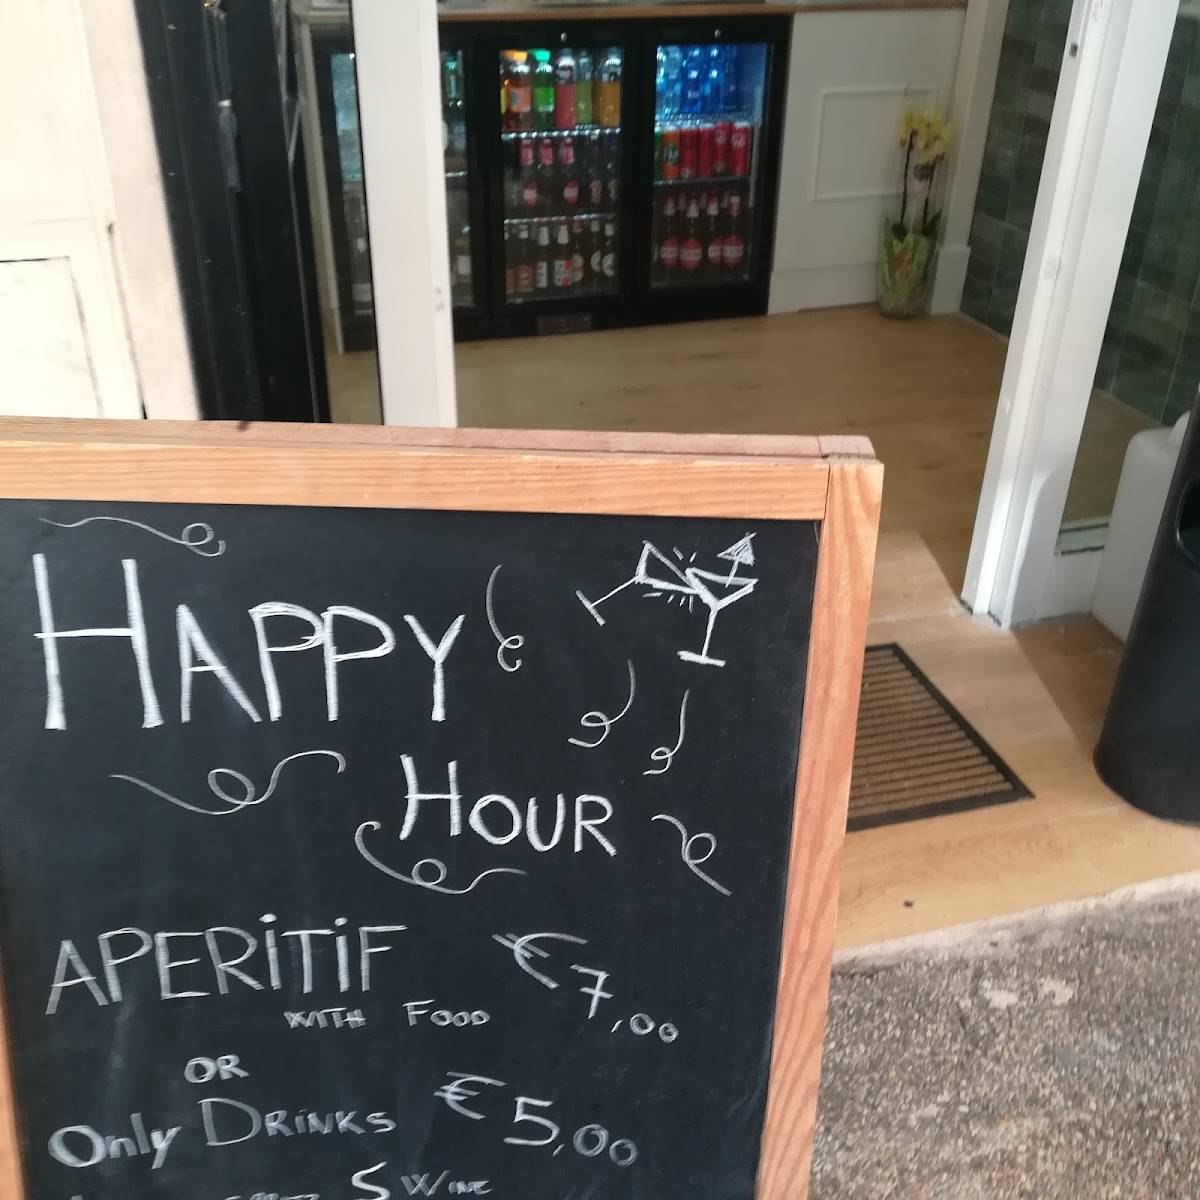 HAPPY
HOUR
APERiTiF €7,00
WITH FOOD
OR
Only DRiNKS €5,00
WINE